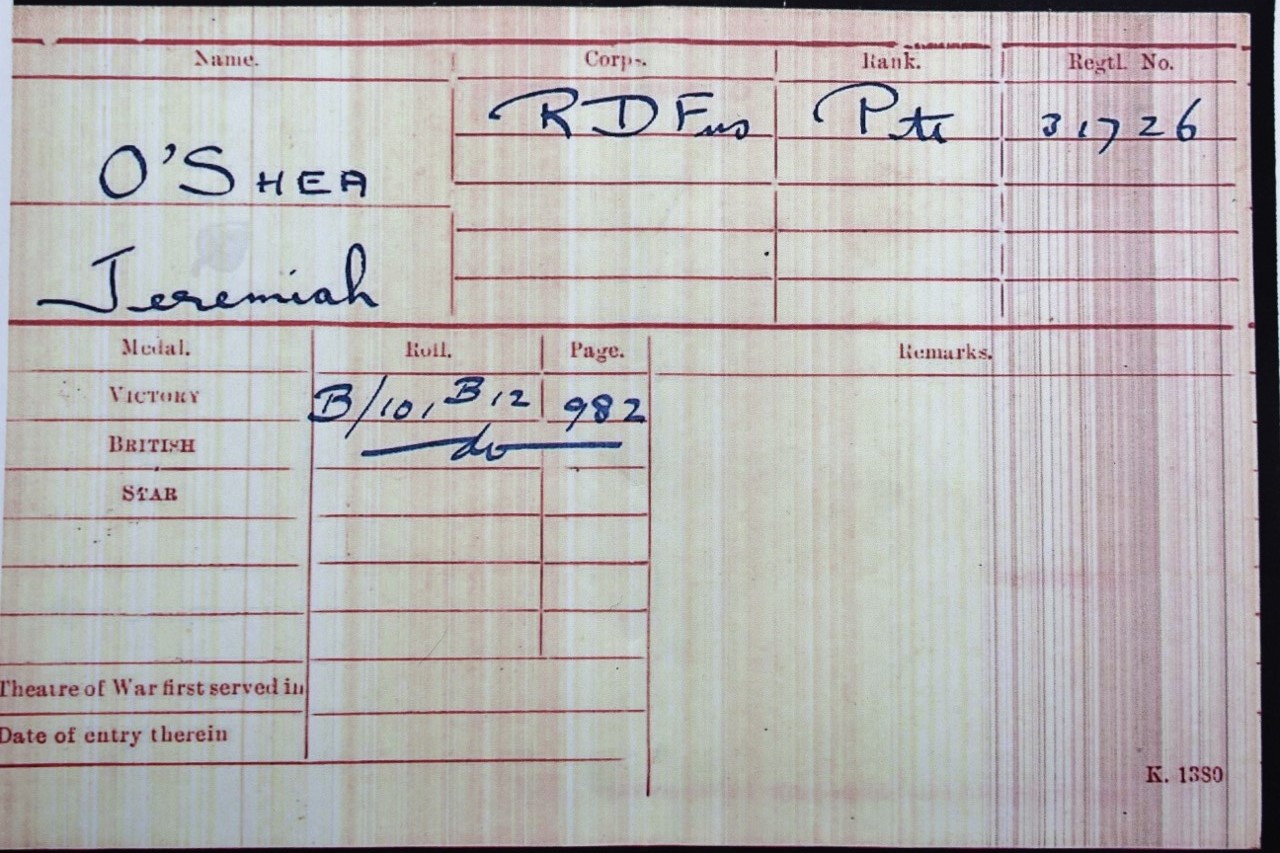 Name. Corps. Rank. Regtl. No.
R D Fus Pte 31726
O'SHEA
Jeremiah
Medal. Roll. Page. Remarks.
VICTORY B/101 B12 982
BRITISH do
STAR
Theatre of War first served in
Date of entry therein
K. 1380